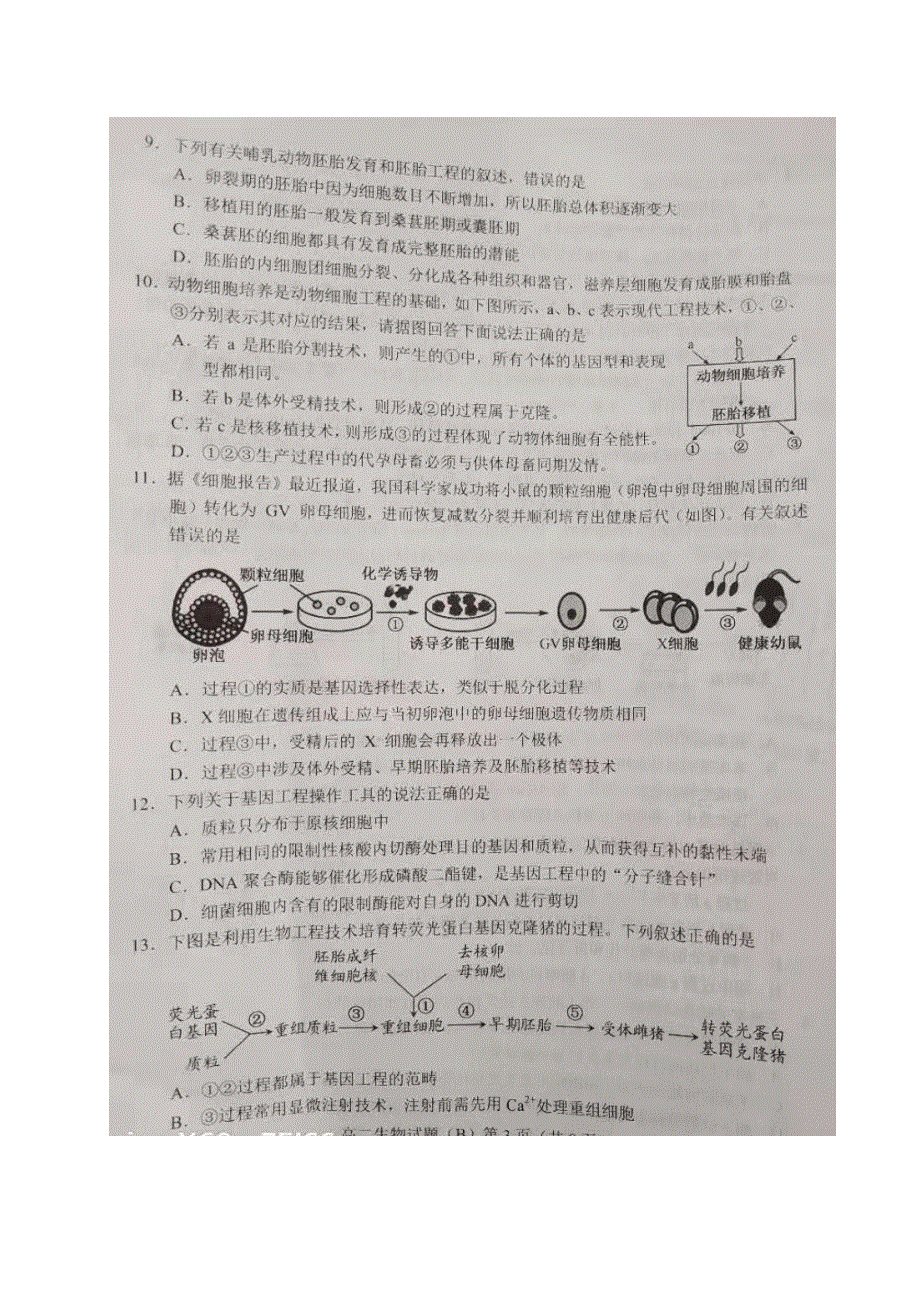 9. 下列有关哺乳动物胚胎发育和胚胎工程的叙述，错误的是
A. 卵裂期的胚胎中因为细胞数目不断增加，所以胚胎总体积逐渐变大
B. 移植用的胚胎一般发育到桑葚胚期或囊胚期
C. 桑葚胚的细胞都具有发育成完整胚胎的潜能
D. 胚胎的内细胞团细胞分裂、分化成各种组织和器官，滋养层细胞发育成胎膜和胎盘
10. 动物细胞培养是动物细胞工程的基础，如下图所示，a、b、c表示现代工程技术，①、②、
③分别表示其对应的结果，请据图回答下面说法正确的是
A. 若 a 是胚胎分割技术，则产生的①中，所有个体的基因型和表现
型都相同。
B. 若 b 是体外受精技术，则形成②的过程属于克隆。
C. 若 c 是核移植技术，则形成③的过程体现了动物体细胞有全能性。
D. ①②③生产过程中的代孕母畜必须与供体母畜同期发情。
a b c
动物细胞培养
胚胎移植
① ② ③
11. 据《细胞报告》最近报道，我国科学家成功将小鼠的颗粒细胞（卵泡中卵母细胞周围的细
胞）转化为 GV 卵母细胞，进而恢复减数分裂并顺利培育出健康后代（如图）。有关叙述
错误的是
颗粒细胞 化学诱导物
① ② ③
卵母细胞 诱导多能干细胞 GV卵母细胞 X细胞 健康幼鼠
卵泡
A. 过程①的实质是基因选择性表达，类似于脱分化过程
B. X 细胞在遗传组成上应与当初卵泡中的卵母细胞遗传物质相同
C. 过程③中，受精后的 X 细胞会再释放出一个极体
D. 过程③中涉及体外受精、早期胚胎培养及胚胎移植等技术
12. 下列关于基因工程操作工具的说法正确的是
A. 质粒只分布于原核细胞中
B. 常用相同的限制性核酸内切酶处理目的基因和质粒，从而获得互补的黏性末端
C. DNA 聚合酶能够催化形成磷酸二酯键，是基因工程中的“分子缝合针”
D. 细菌细胞内含有的限制酶能对自身的 DNA 进行剪切
13. 下图是利用生物工程技术培育转荧光蛋白基因克隆猪的过程。下列叙述正确的是
胚胎成纤 去核卵
维细胞核 母细胞
荧光蛋 ② ③ ① ④ ⑤ 转荧光蛋白
白基因 重组质粒 重组细胞 早期胚胎 受体雌猪 基因克隆猪
质粒
A. ①②过程都属于基因工程的范畴
B. ③过程常用显微注射技术，注射前需先用 Ca²⁺处理重组细胞
高二生物试题（B）第 3 页